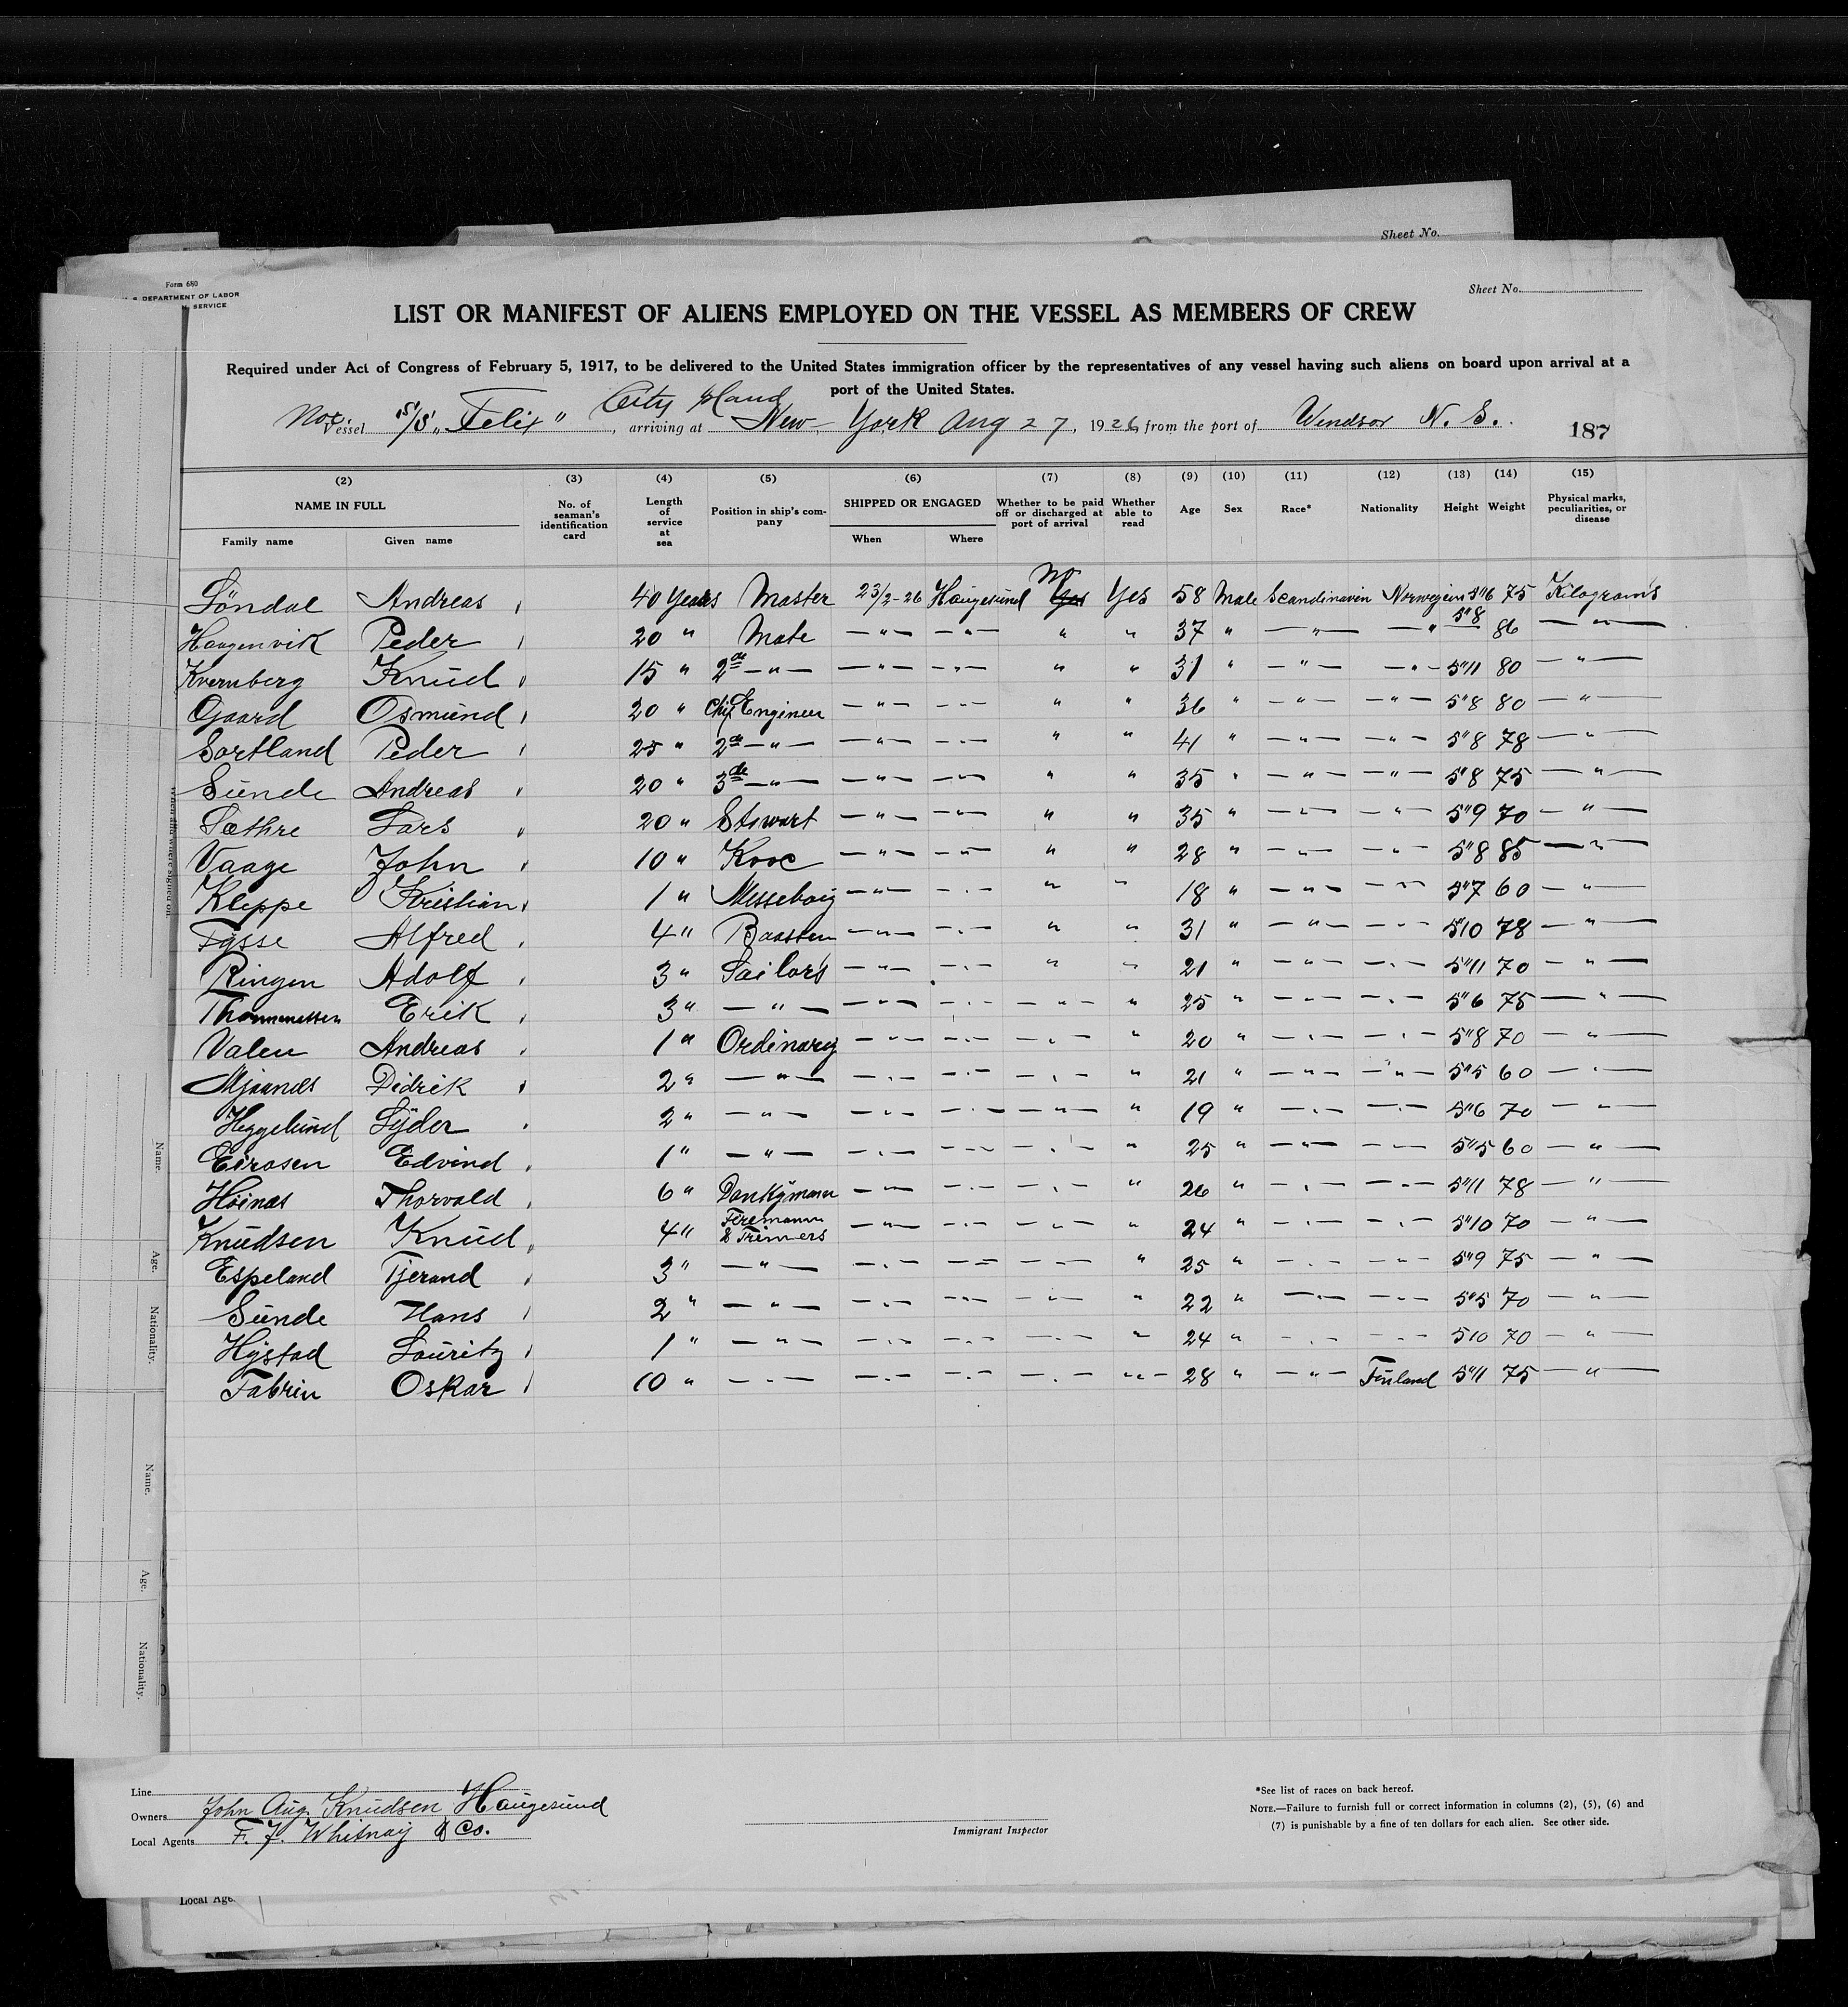 Sheet No.
Form 680
U. S. DEPARTMENT OF LABOR
SERVICE
Sheet No.
LIST OR MANIFEST OF ALIENS EMPLOYED ON THE VESSEL AS MEMBERS OF CREW
Required under Act of Congress of February 5, 1917, to be delivered to the United States immigration officer by the representatives of any vessel having such aliens on board upon arrival at a
port of the United States.
City Island
Nor. Vessel S/S "Felix", arriving at New York Aug 27, 1926, from the port of Windsor N. S.
187
(2) (3) (4) (5) (6) (7) (8) (9) (10) (11) (12) (13) (14) (15)
NAME IN FULL No. of seaman's identification card Length of service at sea Position in ship's company SHIPPED OR ENGAGED Whether to be paid off or discharged at port of arrival Whether able to read Age Sex Race* Nationality Height Weight Physical marks, peculiarities, or disease
Family name Given name When Where
No
Söndal Andreas 40 Years Master 23/2-26 Haugesund Yes Yes 58 Male Scandinavin Norwegien 5"6 75 Kilograms
Haagenvik Peder 20 " Mate — " — — " — " " 37 " — " — — " 5"8 86 — " —
Kvernberg Knud 15 " 2de — " — — " — — " — " " 31 " — " — — " — 5"11 80 — " —
Gaard Osmund 20 " Chif Engineer — " — — " — " " 36 " — " — — " — 5"8 80 — " —
Sortland Peder 25 " 2de — " — — " — — " — " " 41 " — " — — " — 5"8 78 — " —
Sunde Andreas 20 " 3de — " — — " — — " — " " 35 " — " — — " — 5"8 75 — " —
Sæthre Lars 20 " Stewart — " — — " — " " 35 " — " — — " — 5"9 70 — " —
Vaage John 10 " Kooc — " — — " — " " 28 " — " — — " — 5"8 85 — " —
Kleppe Kristian 1 " Messeboig — " — — " — " " 18 " — " — — " — 5"7 60 — " —
Tysse Alfred 4 " Baasten — " — — " — " " 31 " — " — — " — 5"10 78 — " —
Ringen Adolf 3 " Sailors — " — — " — " " 21 " — " — — " — 5"11 70 — " —
Thommessen Erik 3 " — " — — " — — " — — " — " 25 " — " — — " — 5"6 75 — " —
Valen Andreas 1 " Ordinary — " — — " — — " — " 20 " — " — — " — 5"8 70 — " —
Mjaanes Didrik 2 " — " — — " — — " — — " — " 21 " — " — — " — 5"5 60 — " —
Heggelund Lyder 2 " — " — — " — — " — — " — " 19 " — " — — " — 5"6 70 — " —
Eirosen Edvind 1 " — " — — " — — " — — " — " 25 " — " — — " — 5"5 60 — " —
Høinas Thorvald 6 " Donkymann — " — — " — — " — " 26 " — " — — " — 5"11 78 — " —
Knudsen Knud 4 " Firemann & Trimers — " — — " — — " — " 24 " — " — — " — 5"10 70 — " —
Espeland Tjerand 3 " — " — — " — — " — — " — " 25 " — " — — " — 5"9 75 — " —
Sunde Hans 2 " — " — — " — — " — — " — " 22 " — " — — " — 5"5 70 — " —
Hystad Lauritz 1 " — " — — " — — " — — " — " 24 " — " — — " — 510 70 — " —
Fabrin Oskar 10 " — " — — " — — " — — " — " 28 " — " — Finland 5"11 75 — " —
Name.
Age.
Nationality.
Name.
Age.
Nationality.
Line
Owners John Aug. Knudsen Haugesund
Local Agents F. J. Whitnay & Co.
Immigrant Inspector
*See list of races on back hereof.
NOTE.—Failure to furnish full or correct information in columns (2), (5), (6) and
(7) is punishable by a fine of ten dollars for each alien. See other side.
Local Age